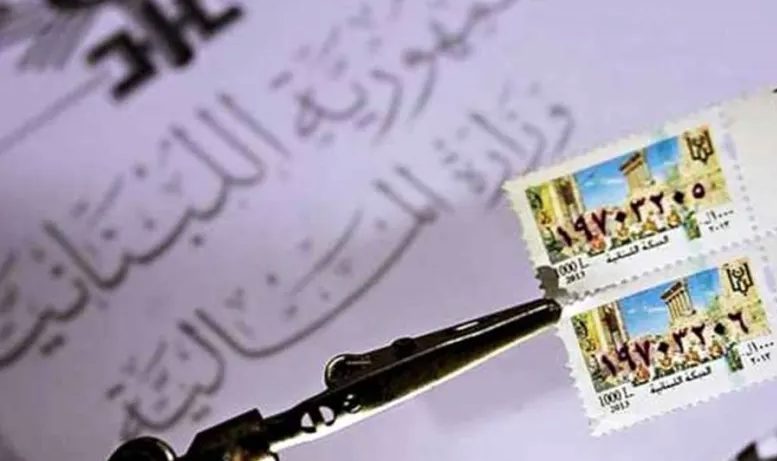 جمهورية اللبنانية
وزارة المالية
١٩٧٠٣٢٠٥
١٠٠٠ل.
٢٠١٣
اللبنانية
1000 L.
2013
١٩٧٠٣٢٠٦
١٠٠٠ل.
٢٠١٣
اللبنانية
1000 L.
2013